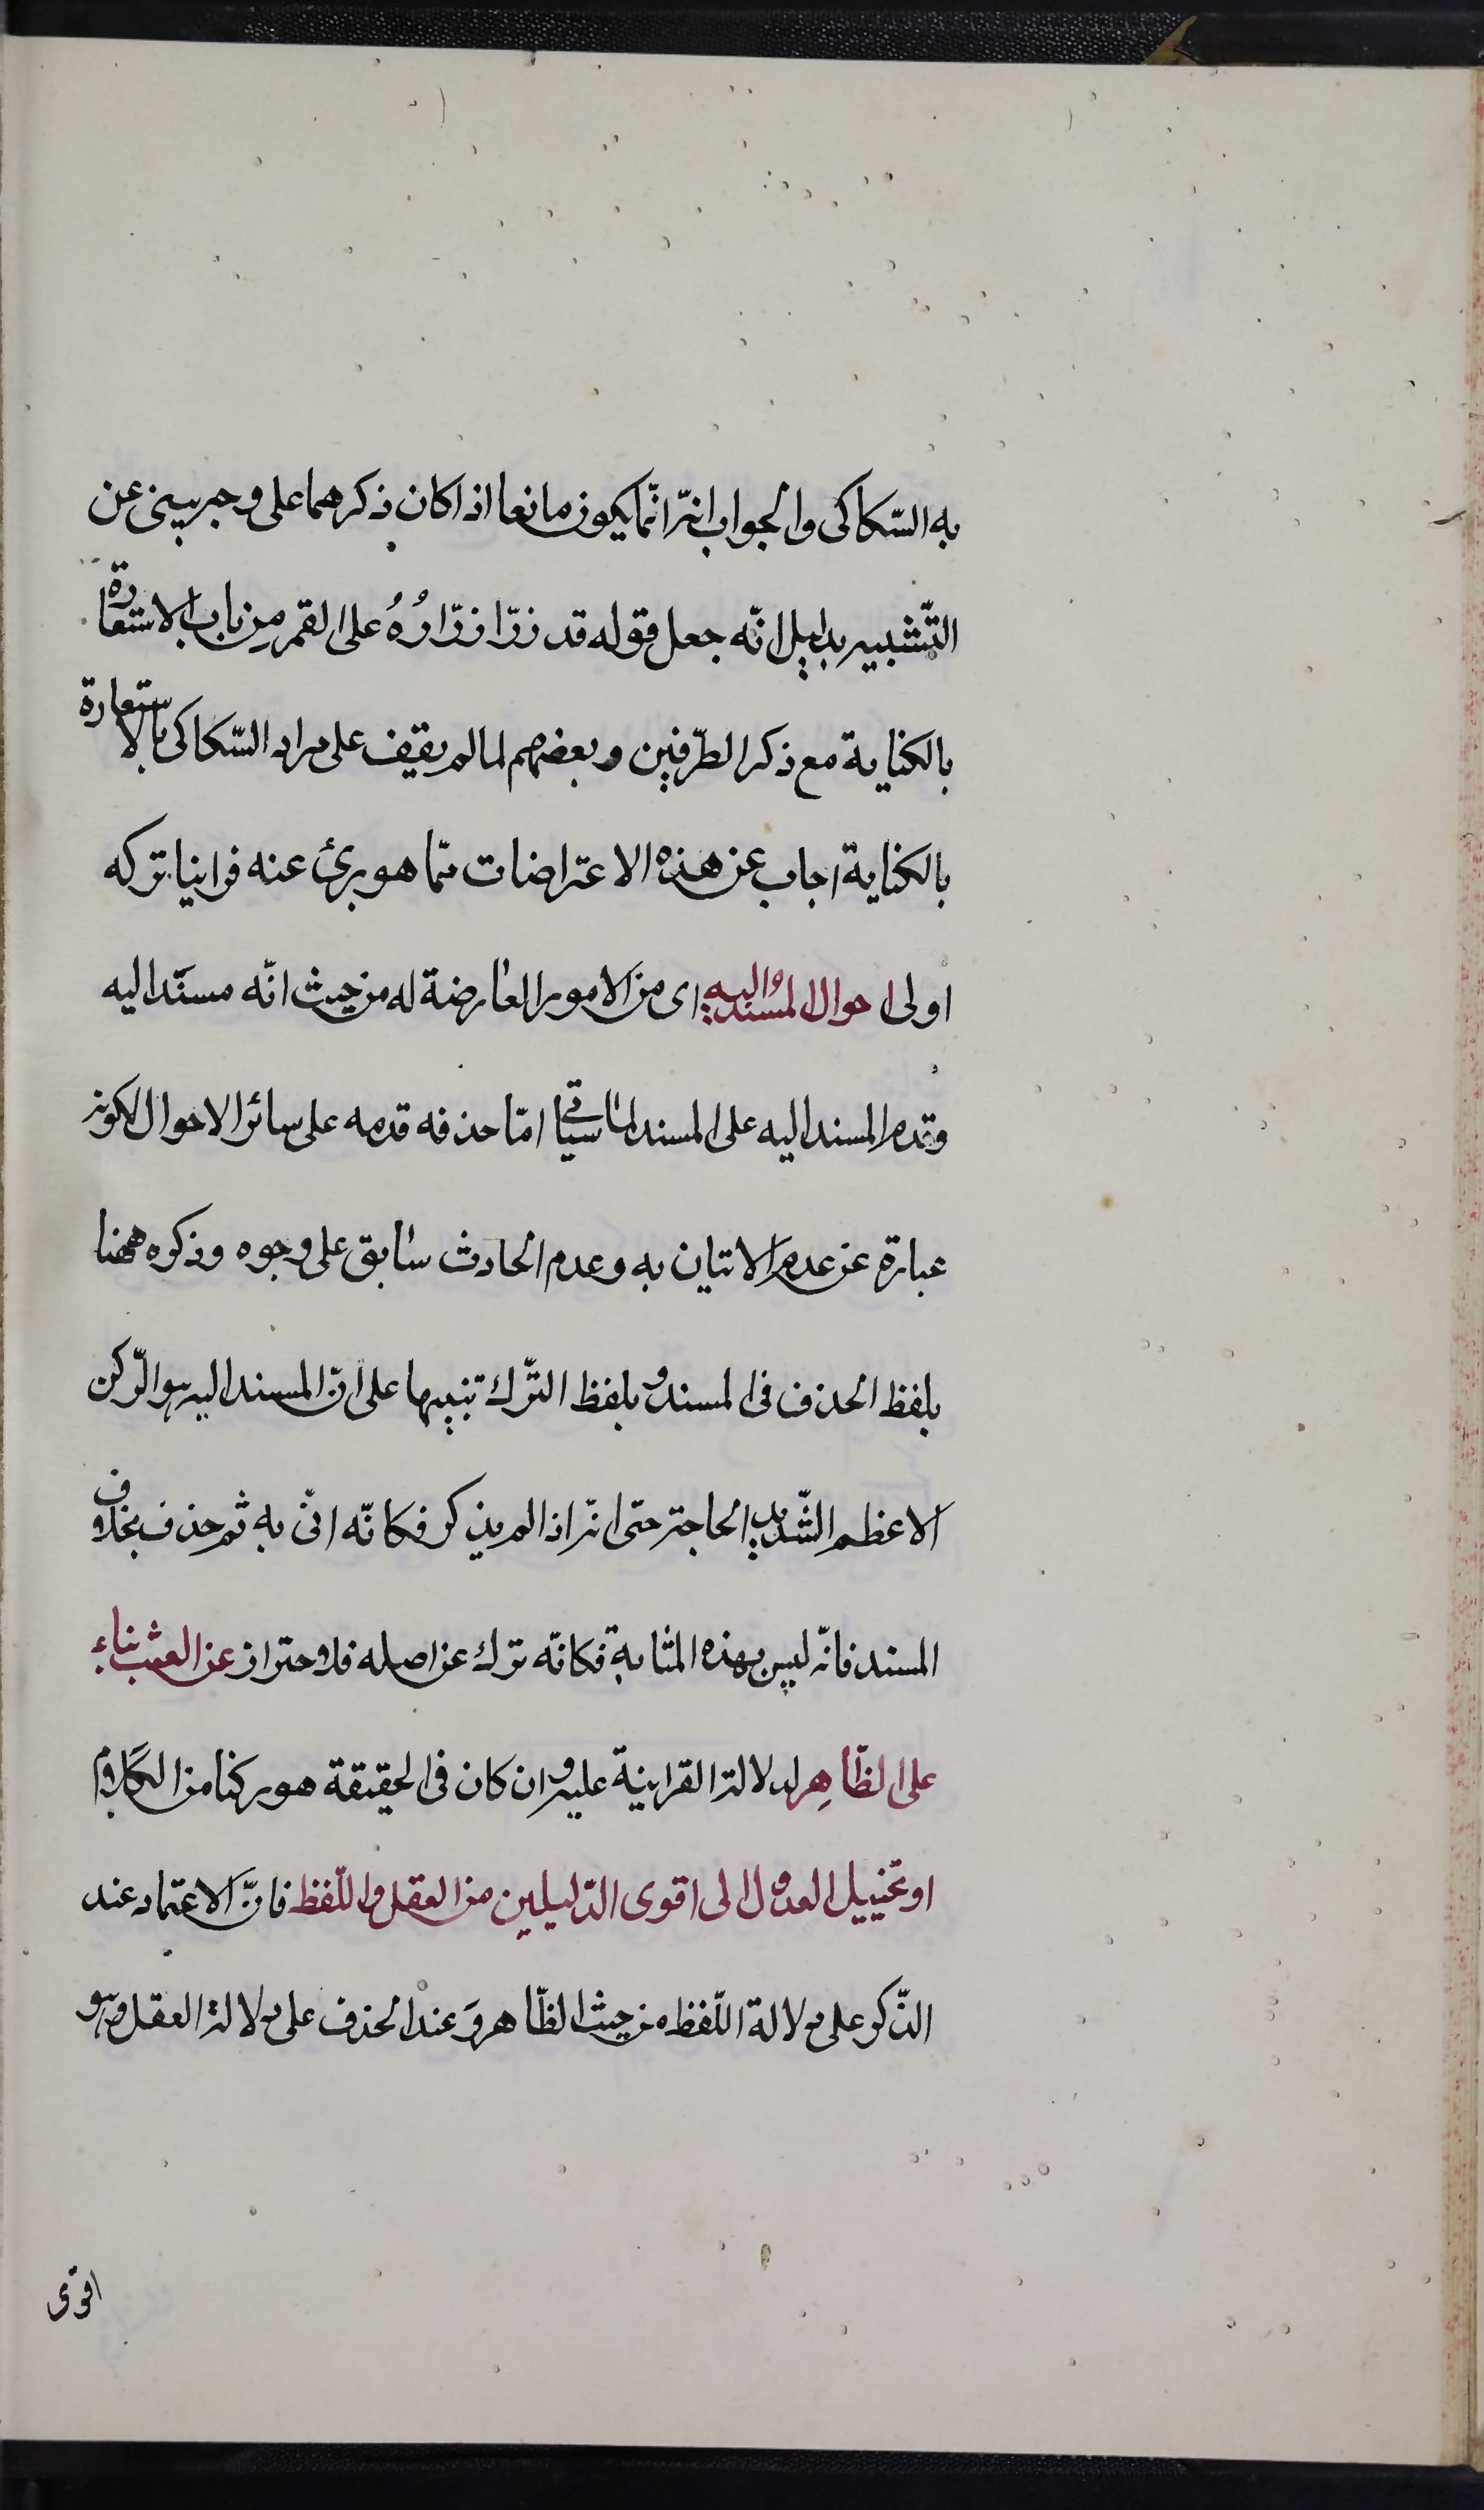 به السّكاكى والجواب انّه انّما يكون مانعا اذا كان ذكرهما على وجه يبنى عن
التّشبيه بدليل انّه جعل قوله قد زرّا زرّارُهُ على القمر مِن باب الاستعارة
بالكناية مع ذكر الطّرفين وبعضهم لما لم يقف على مراد السّكاكى بالاستعارة
بالكناية اجاب عن هذه الاعتراضات ممّا هو برئ عنه فراينا تركه
اولى احوال المسند اليه اى من الامور العارضة له من حيث انّه مسند اليه
وقدم المسند اليه على المسند لما سياتى امّا حذفه قدمه على سائر الاحوال لكونه
عبارة عن عدم الاتيان به وعدم الحادث سابق على وجوده وذكره ههنا
بلفظ الحذف فى المسند وبلفظ التّرك تنبيها على انّ المسند اليه هو الرّكن
الاعظم الشّديد الحاجة حتى انّه اذا لم يذكر فكانّه اتى به ثم حذف بخلاف
المسند فانّه ليس بهذه المثابة فكانّه ترك عن اصله فلاحتراز عن العبث بناء
على الظّاهِر لدلالة القرينة عليه وان كان فى الحقيقة هو ركنا من الكلام
او تخييل العدول الى اقوى الدّليلين من العقل واللّفظ فانّ الاعتماد عند
الذّكر على دلالة اللّفظ من حيث الظّاهر وَعند الحذف على دلالة العقل وهو
اقوى